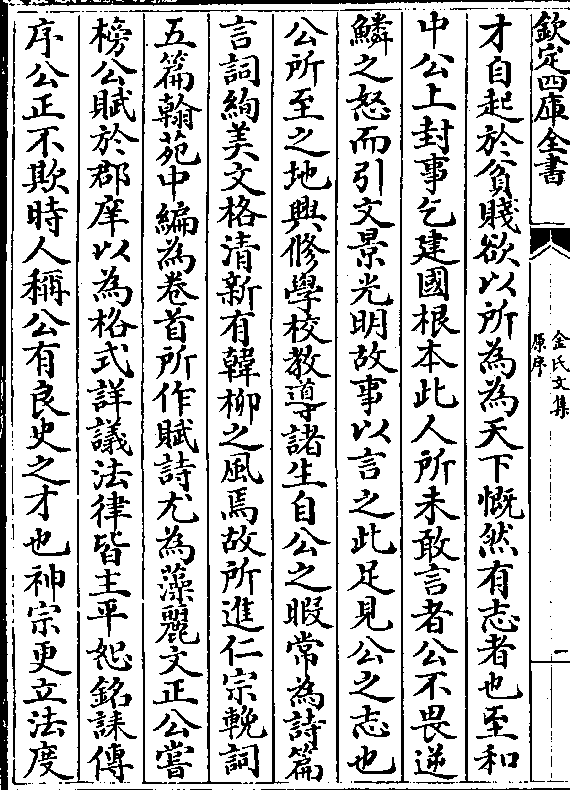 欽定四庫全書
金氏文集
原序
一
才自起於貧賤欲以所為為天下慨然有志者也至和
中公上封事乞建國根本此人所未敢言者公不畏逆
鱗之怒而引文景光明故事以言之此足見公之志也
公所至之地興修學校教導諸生自公之暇常為詩篇
言詞絢美文格清新有韓柳之風焉故所進仁宗輓詞
五篇翰苑中編為卷首所作賦詩尤為藻麗文正公嘗
榜公賦於郡庠以為格式詳議法律皆主平恕銘誄傳
序公正不欺時人稱公有良史之才也神宗更立法度